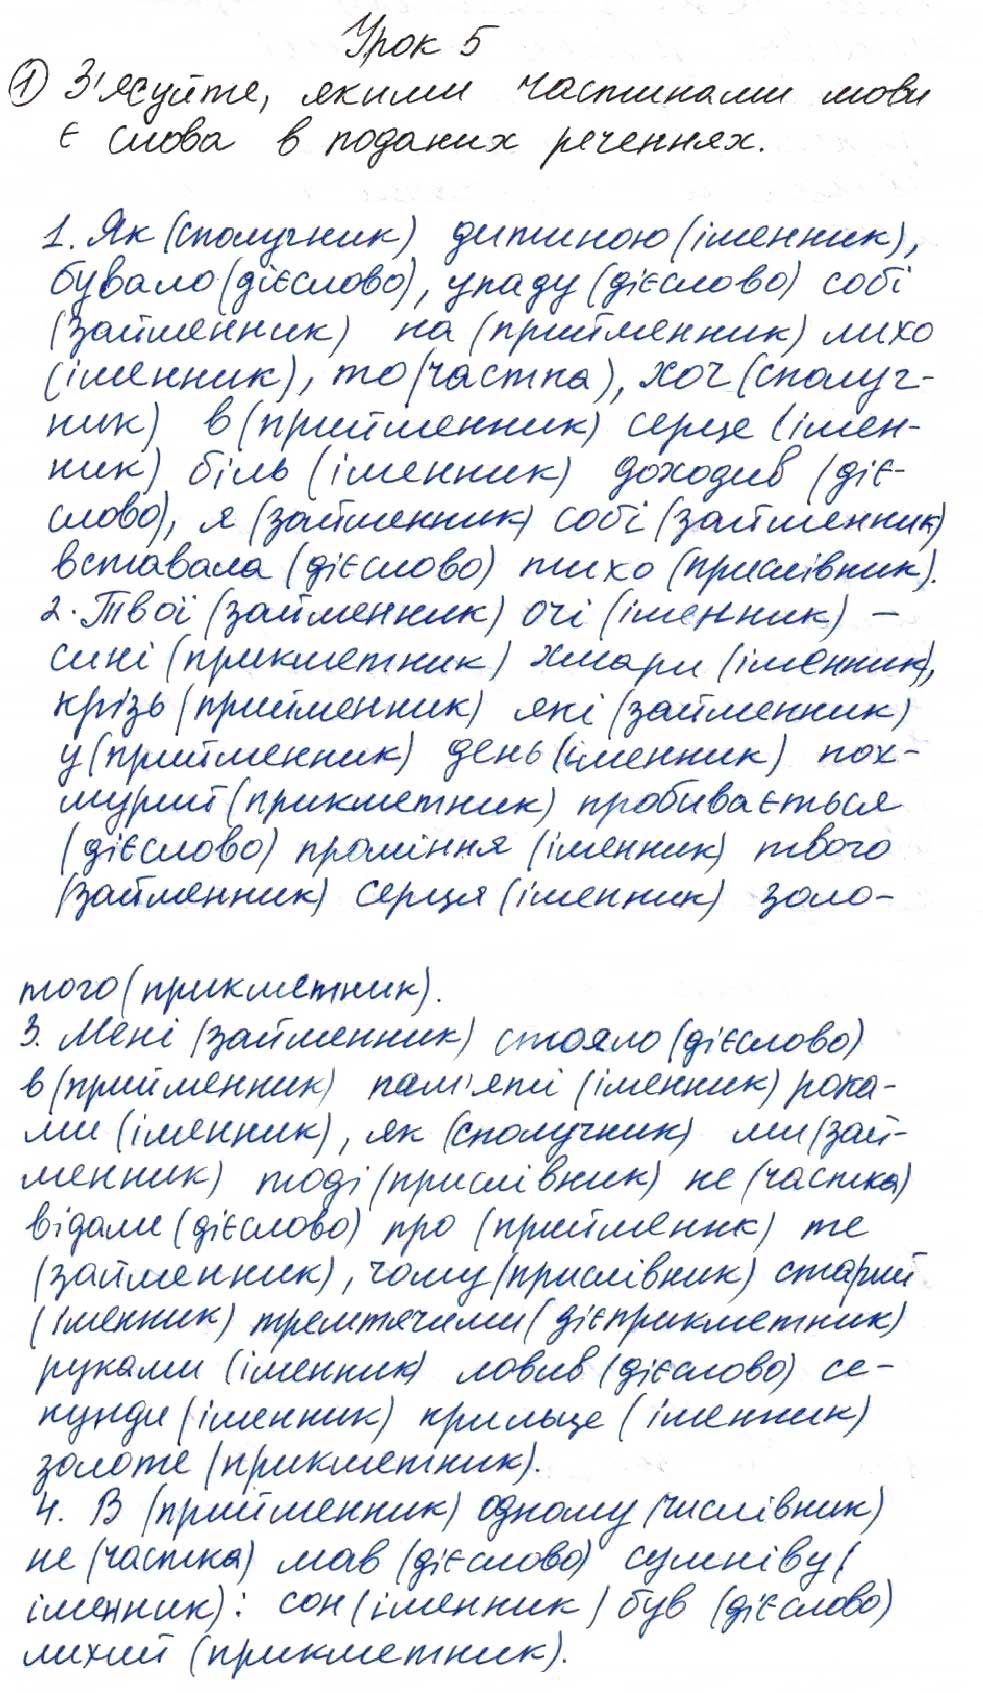 Урок 5
① З'ясуйте, якими частинами мови
є слова в поданих реченнях.
1. Як (сполучник) дитиною (іменник),
бувало (дієслово), упаду (дієслово) собі
(займенник) на (прийменник) лихо
(іменник), то (частка), хоч (сполуч-
ник) в (прийменник) серце (імен-
ник) біль (іменник) доходив (діє-
слово), я (займенник) собі (займенник)
вставала (дієслово) тихо (прислівник).
2. Твої (займенник) очі (іменник) –
сині (прикметник) хмари (іменник),
крізь (прийменник) які (займенник)
у (прийменник) день (іменник) пох-
мурий (прикметник) пробивається
(дієслово) проміння (іменник) твого
(займенник) серця (іменник) золо-
того (прикметник).
3. Мені (займенник) стояло (дієслово)
в (прийменник) пам'яті (іменник) рока-
ми (іменник), як (сполучник) ми (зай-
менник) тоді (прислівник) не (частка)
відали (дієслово) про (прийменик) те
(займенник), чому (прислівник) старий
(іменник) тремтячими (дієприкметник)
руками (іменник) ловив (дієслово) се-
кунди (іменник) крильце (іменник)
золоте (прикметник).
4. В (прийменник) одному (числівник)
не (частка) мав (дієслово) сумніву (
іменник): сон (іменник) був (дієслово)
лихий (прикметник).